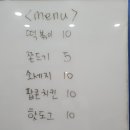 <menu>
떡볶이 10
쫀드기 5
소세지 10
팝콘치킨 10
핫도그 10